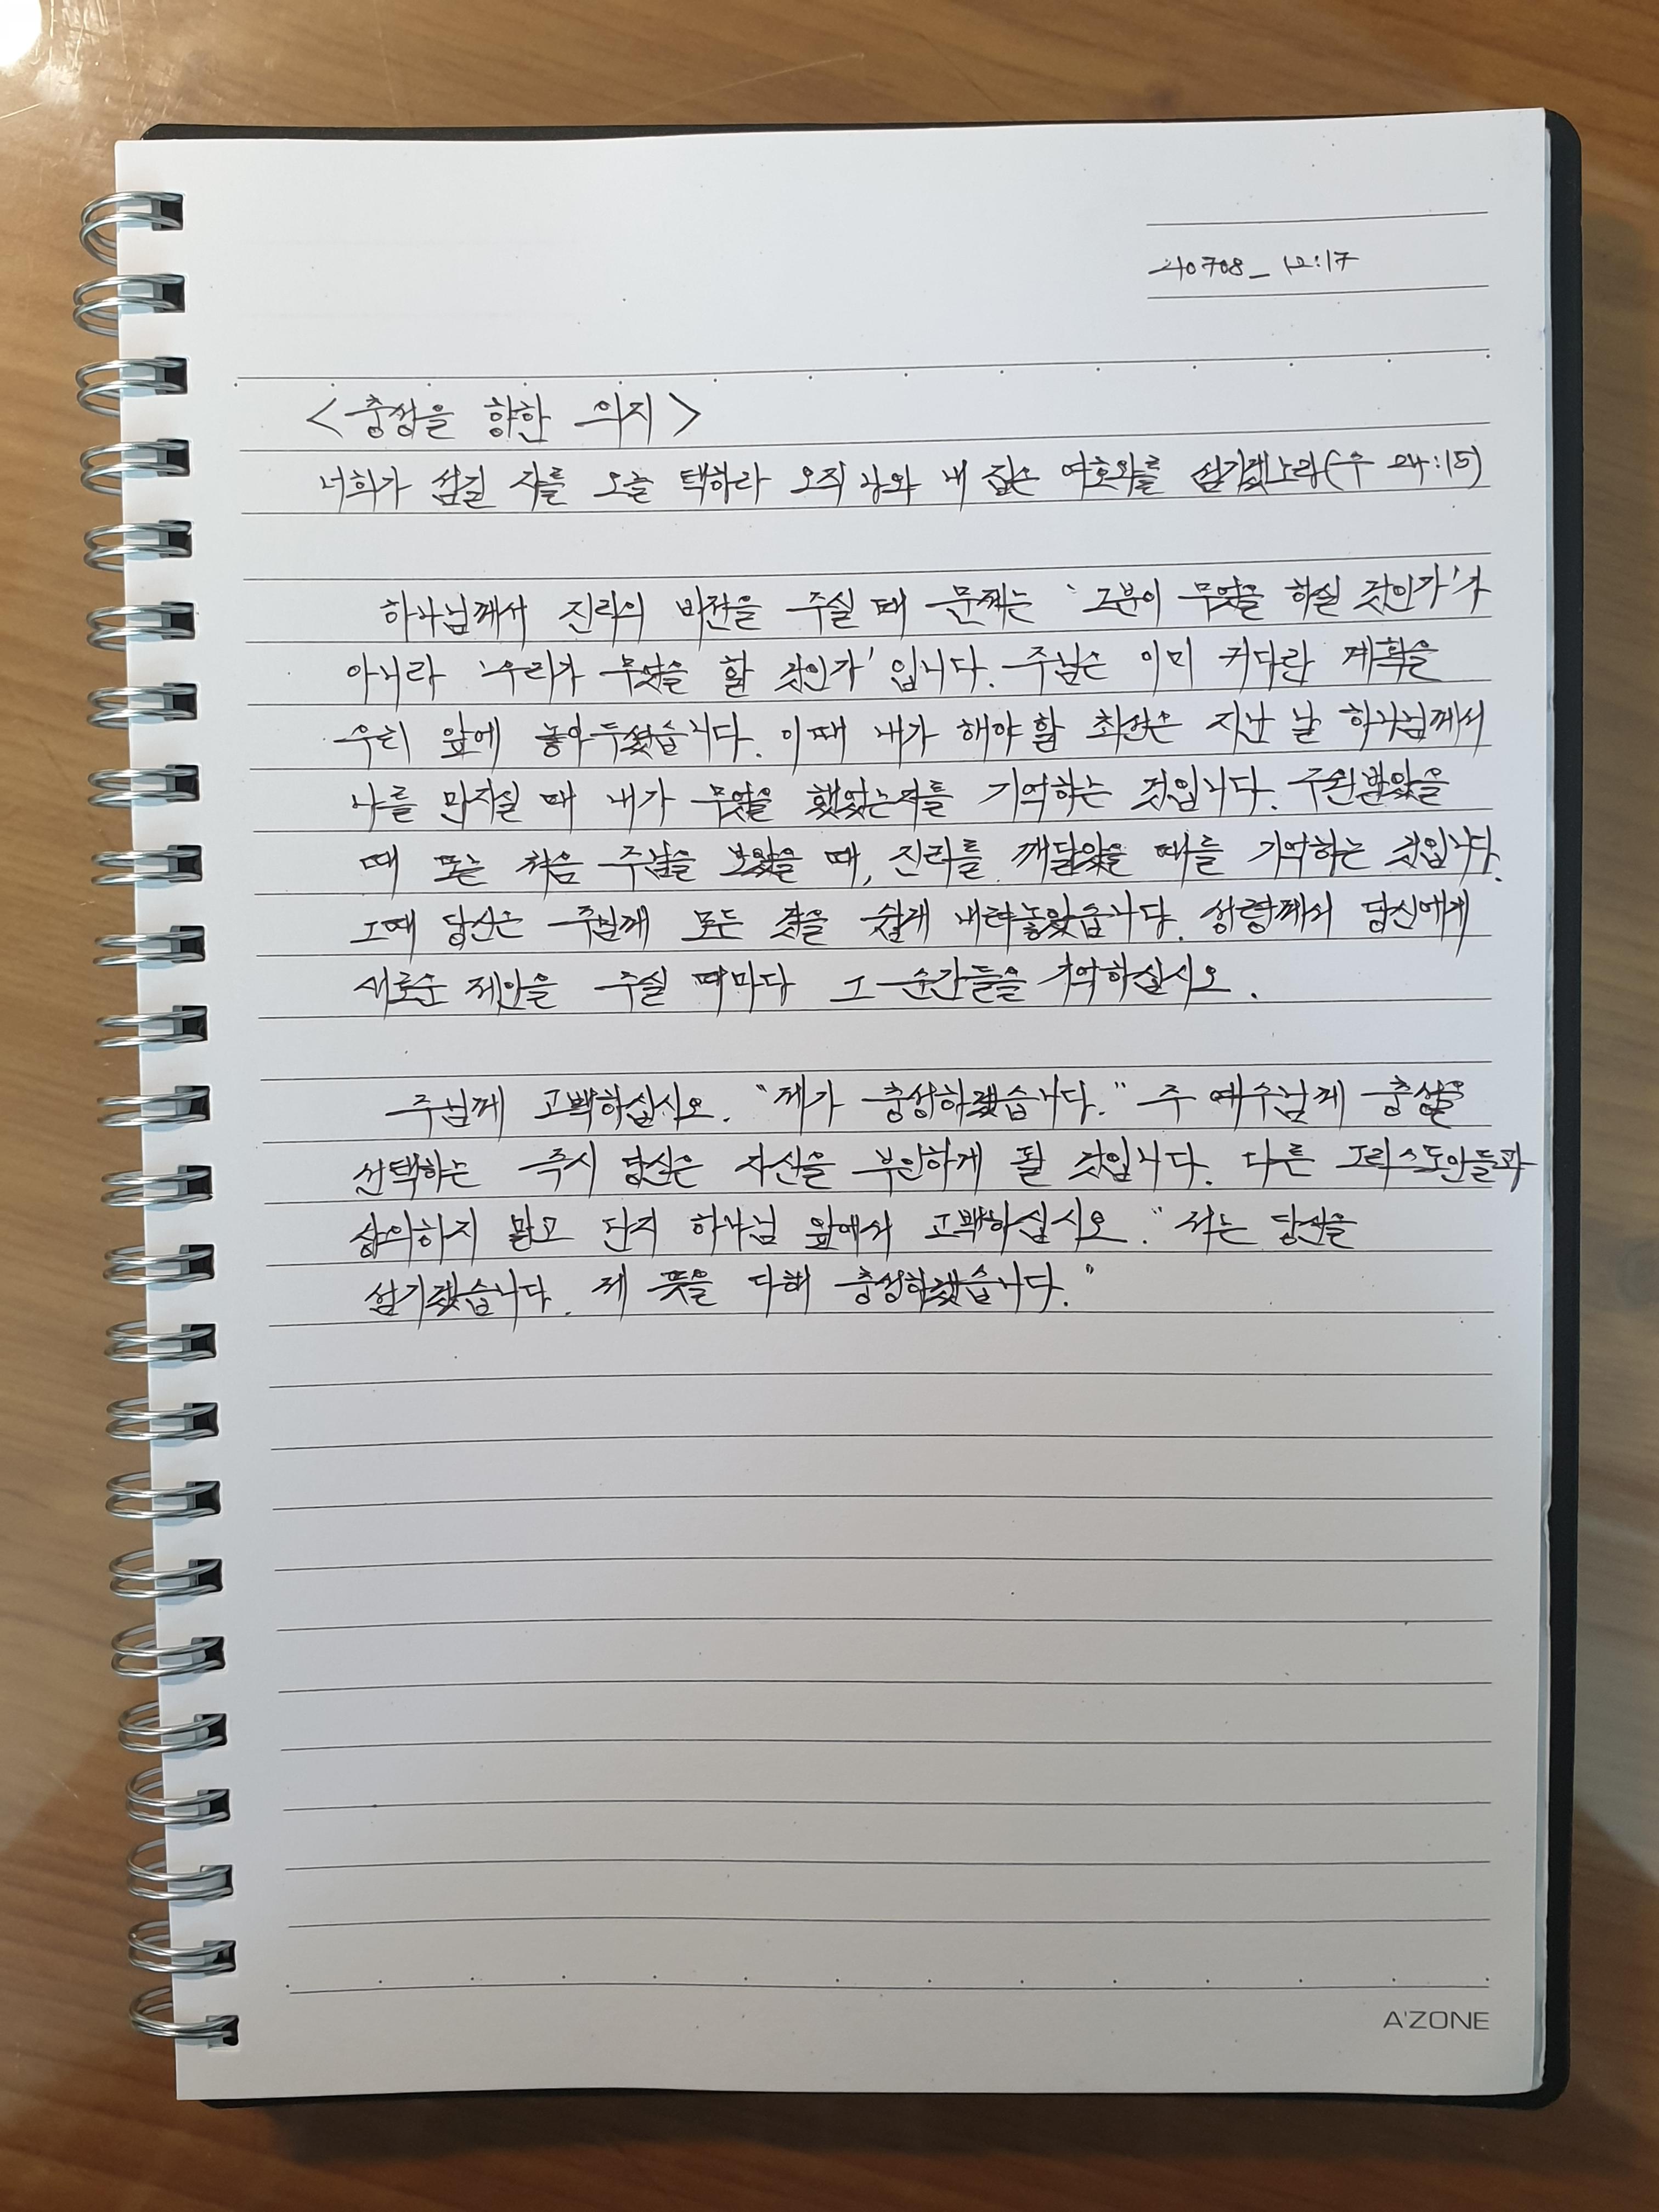 210708_ 12:17
<충성을 향한 의지>
너희가 섬길 자를 오늘 택하라 오직 나와 내 집은 여호와를 섬기겠노라(수 24:15)
하나님께서 진리의 비전을 주실 때 문제는 '그분이 무엇을 하실 것인가'가
아니라 '우리가 무엇을 할 것인가'입니다. 주님은 이미 커다란 계획을
우리 앞에 놓아두셨습니다. 이때 내가 해야 할 최선은 지난 날 하나님께서
나를 만지실 때 내가 무엇을 했었는지를 기억하는 것입니다. 구원받았을
때 또는 처음 주님을 보았을 때, 진리를 깨달았을 때를 기억하는 것입니다.
그때 당신은 주님께 모든 것을 쉽게 내려놓았습니다. 성령께서 당신에게
새로운 제안을 주실 때마다 그 순간들을 기억하십시오.
주님께 고백하십시오. "제가 충성하겠습니다." 주 예수님께 충성을
선택하는 즉시 당신은 자신을 부인하게 될 것입니다. 다른 그리스도인들과
상의하지 말고 단지 하나님 앞에서 고백하십시오. "저는 당신을
섬기겠습니다. 제 뜻을 다해 충성하겠습니다."
A'ZONE